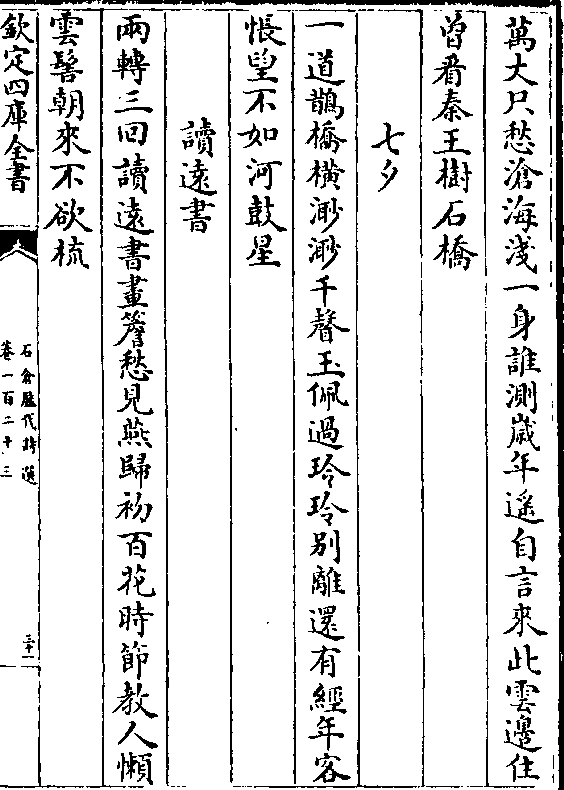 萬丈只愁滄海淺一身誰測歲年遥自言來此雲邊住
曾看秦王樹石橋
七夕
一道鵲橋橫渺渺千聲玉佩過玲玲別離還有經年客
悵望不如河鼓星
讀遠書
兩轉三回讀遠書畫簷愁見燕歸初百花時節教人懶
雲髻朝來不欲梳
欽定四庫全書
石倉歷代詩選
卷一百二十三